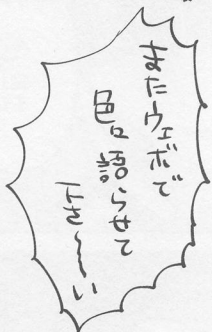 またウェボで
色々語らせて
下さ〜〜い